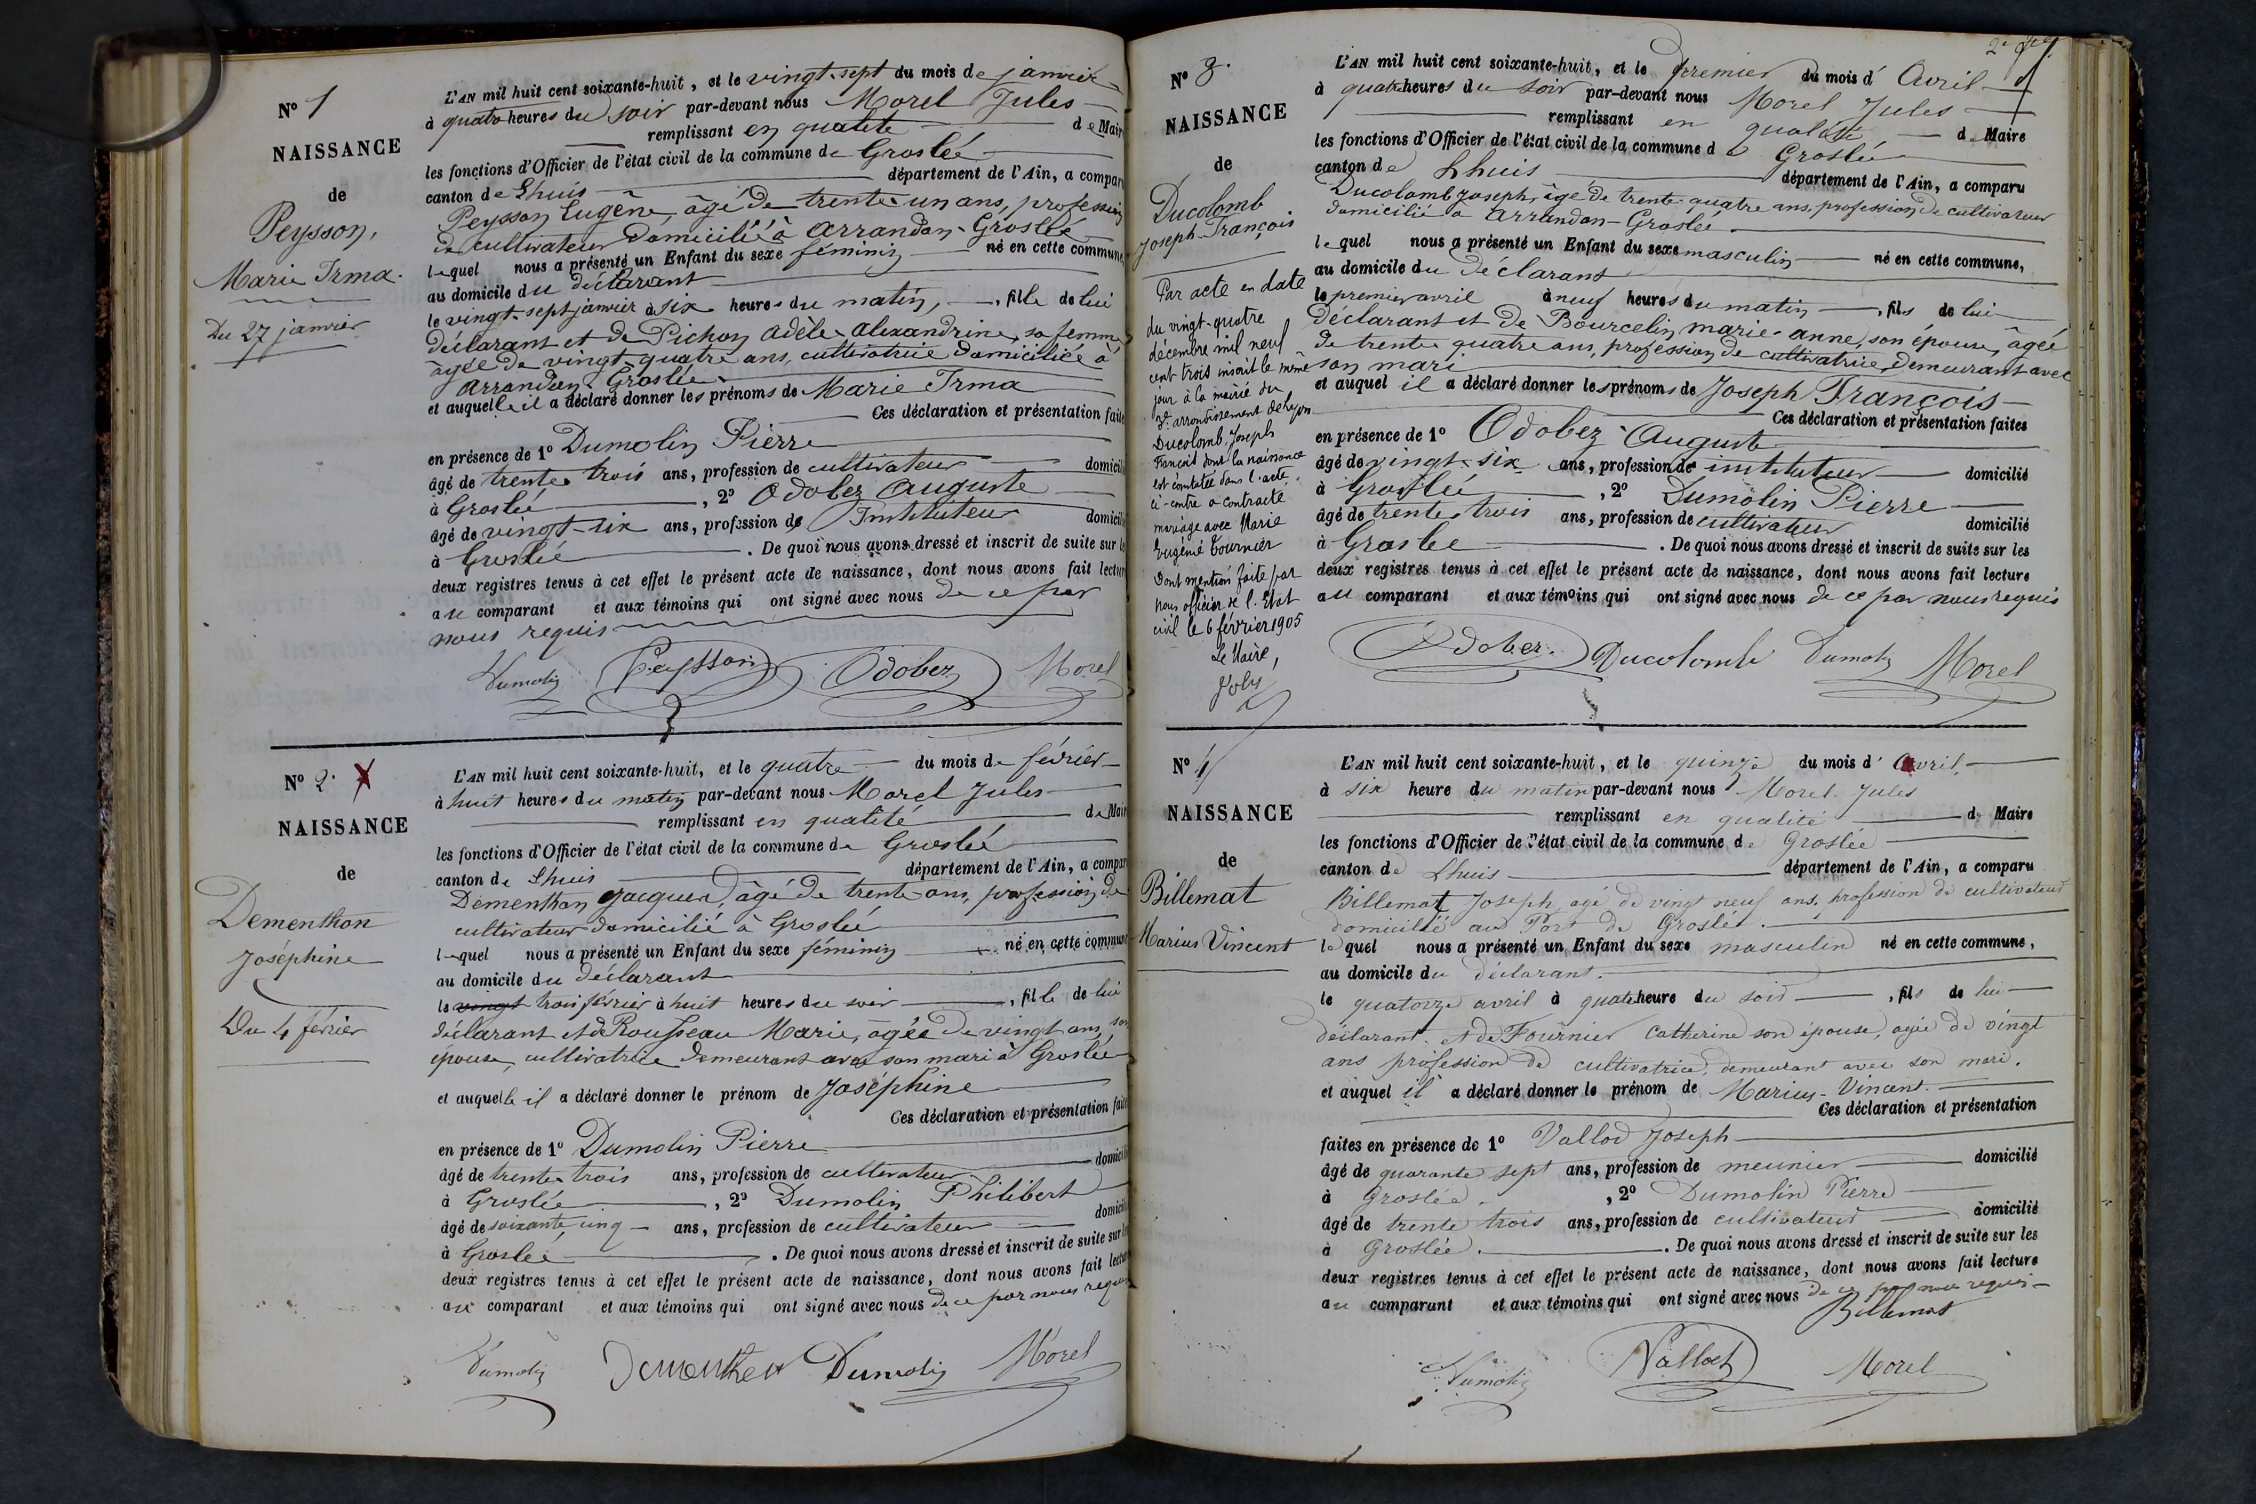 Nº 1
NAISSANCE
de
Peysson,
Marie Irma.
Du 27 janvier
L'AN mil huit cent soixante-huit, et le vingt-sept du mois de janvier
à quatre heures du soir par-devant nous Morel Jules
remplissant en qualité de Mair
les fonctions d'Officier de l'état civil de la commune de Groslée
canton de Lhuis département de l'Ain, a compar
Peysson Eugène, âgé de trente un ans, profession
de cultivateur domicilié à Arrandon-Groslée
lequel nous a présenté un Enfant du sexe féminin né en cette commune
au domicile du déclarant
le vingt-sept janvier à six heures du matin, fille de lui
déclarant et de Pichon Adèle Alexandrine, sa femme
âgée de vingt quatre ans, cultivatrice domiciliée à
Arrandon-Groslée
et auquelle il a déclaré donner les prénoms de Marie Irma
Ces déclaration et présentation faite
en présence de 1º Dumolin Pierre
âgé de trente trois ans, profession de cultivateur domicili
à Groslée, 2º Odobez Auguste
âgé de vingt-six ans, profession de Instituteur domicili
à Groslée. De quoi nous avons dressé et inscrit de suite sur le
deux registres tenus à cet effet le présent acte de naissance, dont nous avons fait lectur
au comparant et aux témoins qui ont signé avec nous de ce par
nous requis
Dumolin Peysson Odobez Morel
Nº 2.
NAISSANCE
de
Dementhon
Joséphine
Du 4 février
L'AN mil huit cent soixante-huit, et le quatre du mois de février
à huit heures du matin par-devant nous Morel Jules
remplissant en qualité de Mair
les fonctions d'Officier de l'état civil de la commune de Groslée
canton de Lhuis département de l'Ain, a compar
Dementhon Jacques, âgé de trente ans, profession de
cultivateur domicilié à Groslée
lequel nous a présenté un Enfant du sexe féminin né en cette commun
au domicile du déclarant
le vingt trois février à huit heures du soir, fille de lui
déclarant et de Rousseau Marie, âgée de vingt ans, son
épouse, cultivatrice demeurant avec son mari à Groslée
et auquelle il a déclaré donner le prénom de Joséphine
Ces déclaration et présentation faite
en présence de 1º Dumolin Pierre
âgé de trente trois ans, profession de cultivateur domicili
à Groslée, 2º Dumolin Philibert
âgé de soixante cinq ans, profession de cultivateur domicili
à Groslée. De quoi nous avons dressé et inscrit de suite sur le
deux registres tenus à cet effet le présent acte de naissance, dont nous avons fait lectur
au comparant et aux témoins qui ont signé avec nous de ce par nous requi
Dumolin Dementhon Dumolin Morel
Nº 3.
NAISSANCE
de
Ducolomb
Joseph-François
Par acte en date
du vingt-quatre
décembre mil neuf
cent trois inscrit le même
jour à la mairie du
arrondissement de Lyon
Ducolomb Joseph
François dont la naissance
est constatée dans l'acte
ci-contre a contracté
mariage avec Marie
Eugénie Tournier
Dont mention faite par
nous officier de l'état
civil le 6 février 1905
Le Maire,
Joly
L'AN mil huit cent soixante-huit, et le premier du mois d'Avril
à quatre heures du soir par-devant nous Morel Jules
remplissant en qualité de Maire
les fonctions d'Officier de l'état civil de la commune de Groslée
canton de Lhuis département de l'Ain, a comparu
Ducolomb Joseph, âgé de trente-quatre ans, profession de cultivateur
domicilié à Arrandon-Groslée
lequel nous a présenté un Enfant du sexe masculin né en cette commune,
au domicile du déclarant
le premier avril à neuf heures du matin, fils de lui
déclarant et de Bourcelin marie-anne, son épouse, âgée
de trente quatre ans, profession de cultivatrice, demeurant avec
son mari
et auquel il a déclaré donner les prénoms de Joseph François
Ces déclaration et présentation faites
en présence de 1º Odobez Auguste
âgé de vingt-six ans, profession de instituteur domicilié
à Groslée, 2º Dumolin Pierre
âgé de trente trois ans, profession de cultivateur domicilié
à Groslée. De quoi nous avons dressé et inscrit de suite sur les
deux registres tenus à cet effet le présent acte de naissance, dont nous avons fait lecture
au comparant et aux témoins qui ont signé avec nous de ce par nous requis
Odobez. Ducolomb Dumolin Morel
Nº 4
NAISSANCE
de
Billemat
Marius Vincent
L'AN mil huit cent soixante-huit, et le quinze du mois d'avril,
à six heure du matin par-devant nous Morel Jules
remplissant en qualité de Maire
les fonctions d'Officier de l'état civil de la commune de Groslée
canton de Lhuis département de l'Ain, a comparu
Billemat Joseph, agé de vingt neuf ans, profession de cultivateur
domicilié au Port de Groslée.
lequel nous a présenté un Enfant du sexe masculin né en cette commune,
au domicile du déclarant.
le quatorze avril à quatre heure du soir, fils de lui
déclarant. et de Fournier Catherine son épouse, agée de vingt
ans profession de cultivatrice, demeurant avec son mari.
et auquel il a déclaré donner le prénom de Marius-Vincent.
Ces déclaration et présentation
faites en présence de 1º Vallod Joseph
âgé de quarante sept ans, profession de meunier domicilié
à Groslée, 2º Dumolin Pierre
âgé de trente trois ans, profession de cultivateur domicilié
à Groslée. De quoi nous avons dressé et inscrit de suite sur les
deux registres tenus à cet effet le présent acte de naissance, dont nous avons fait lecture
au comparant et aux témoins qui ont signé avec nous de ce par nous requis
Billemat
Dumolin Vallod Morel